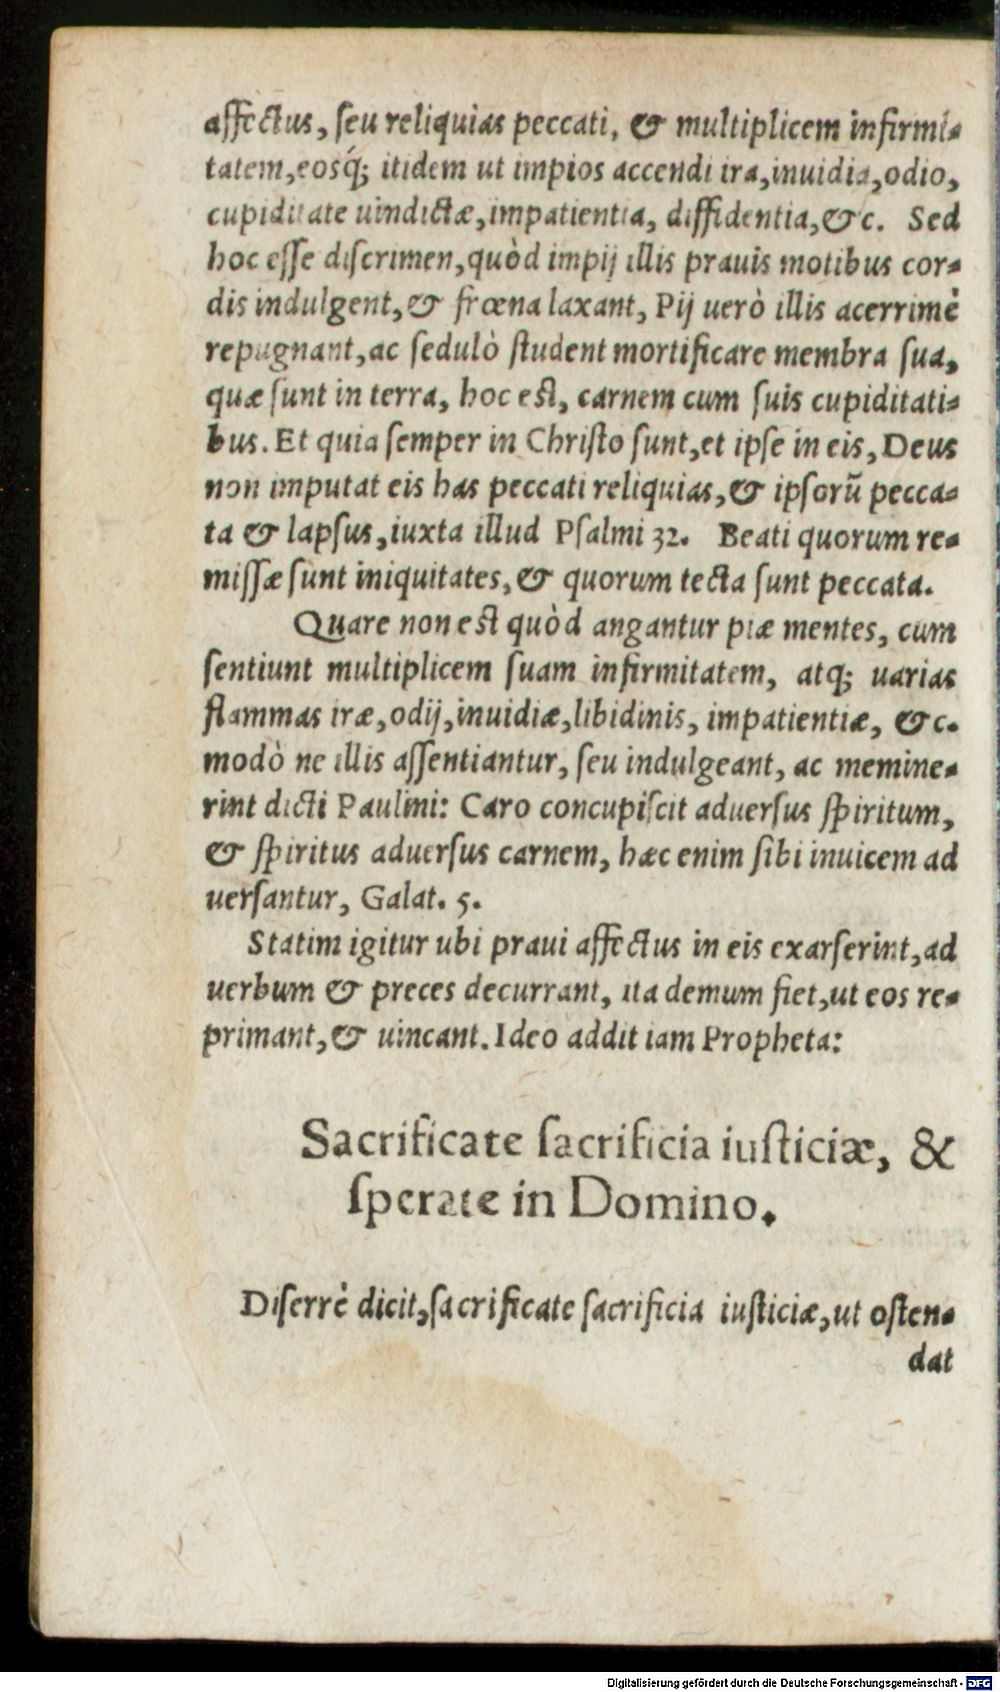 affectus, ſeu reliquias peccati, & multiplicem infirmi-
tatem, eosq́; itidem ut impios accendi ira, inuidia, odio,
cupiditate uindictæ, impatientia, diffidentia, &c. Sed
hoc eſſe diſcrimen, quòd impij illis prauis motibus cor-
dis indulgent, & frœna laxant, Pij uerò illis acerrimè
repugnant, ac ſedulò ſtudent mortificare membra ſua,
quæ ſunt in terra, hoc eſt, carnem cum ſuis cupiditati-
bus. Et quia ſemper in Chriſto ſunt, et ipſe in eis, Deus
non imputat eis has peccati reliquias, & ipſorũ pecca-
ta & lapſus, iuxta illud Pſalmi 32. Beati quorum re-
miſſæ ſunt iniquitates, & quorum tecta ſunt peccata.
Quare non eſt quòd angantur piæ mentes, cum
ſentiunt multiplicem ſuam infirmitatem, atq; uarias
flammas iræ, odij, inuidiæ, libidinis, impatientiæ, &c.
modò ne illis aſſentiantur, ſeu indulgeant, ac memine-
rint dicti Paulini: Caro concupiſcit aduerſus ſpiritum,
& ſpiritus aduerſus carnem, hæc enim ſibi inuicem ad
uerſantur, Galat. 5.
Statim igitur ubi praui affectus in eis exarſerint, ad
uerbum & preces decurrant, ita demum fiet, ut eos re-
primant, & uincant. Ideo addit iam Propheta:
Sacrificate ſacrificia iuſticiæ, &
ſperate in Domino.
Diſerrè dicit, ſacrificate ſacrificia iuſticiæ, ut oſten-
dat
Digitalisierung gefördert durch die Deutsche Forschungsgemeinschaft - DFG